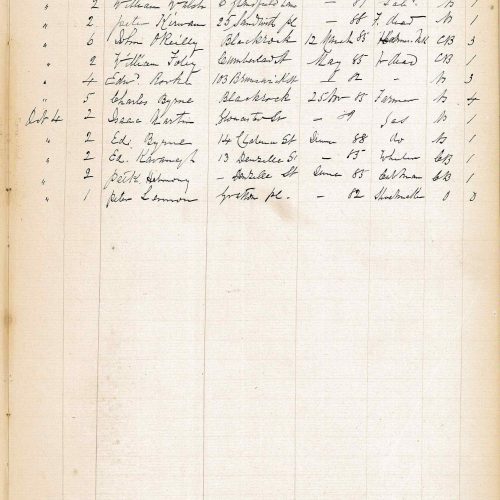 " 2 William Walsh — 87 1
" 2 Peter Kirwan 25 Sandwith pl — 88 F. dead N 1
" 6 John O'Reilly Blackrock 12 March 85 CB 3
" 2 William Foley Cumberland St May 85 F dead CB 1
" 4 Edwd. Rooke 103 Brunswick St " 82 " N 3
" 5 Charles Byrne Blackrock 25 Nov 85 Farmer N 4
Oct 4 2 Isaac Martin Gloucester St — 89 Gas N 1
" 2 Ed. Byrne 14 Clarence St June 88 Do N 1
" 2 Ed. Kavanagh 13 Denzille St — 85 CB 1
" 2 Patk. — Denzille St June 85 Cabman CB 1
" 1 Peter Lennon Grattan pl. — 82 Shoemaker O 3